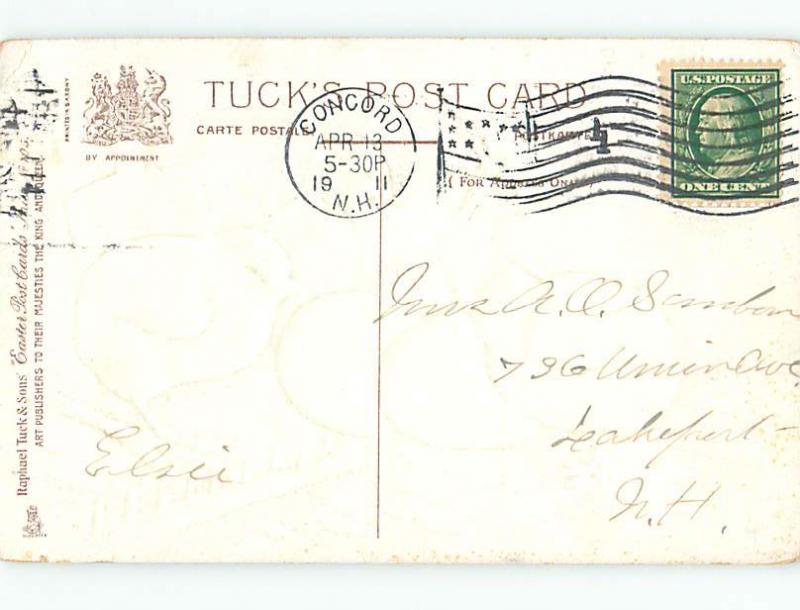 TUCK'S POST CARD
CARTE POSTALE
POSTKARTE
( FOR ADDRESS ONLY )
PRINTED IN SAXONY
BY APPOINTMENT
CONCORD
APR 13
5-30P
19 11
N.H.
4
U.S. POSTAGE
ONE CENT
Raphael Tuck & Sons' "Easter Post Cards"
ART PUBLISHERS TO THEIR MAJESTIES THE KING AND QUEEN
Mrs A. O. Sanborn
736 Union Ave
Lakeport
N.H.
Elsie